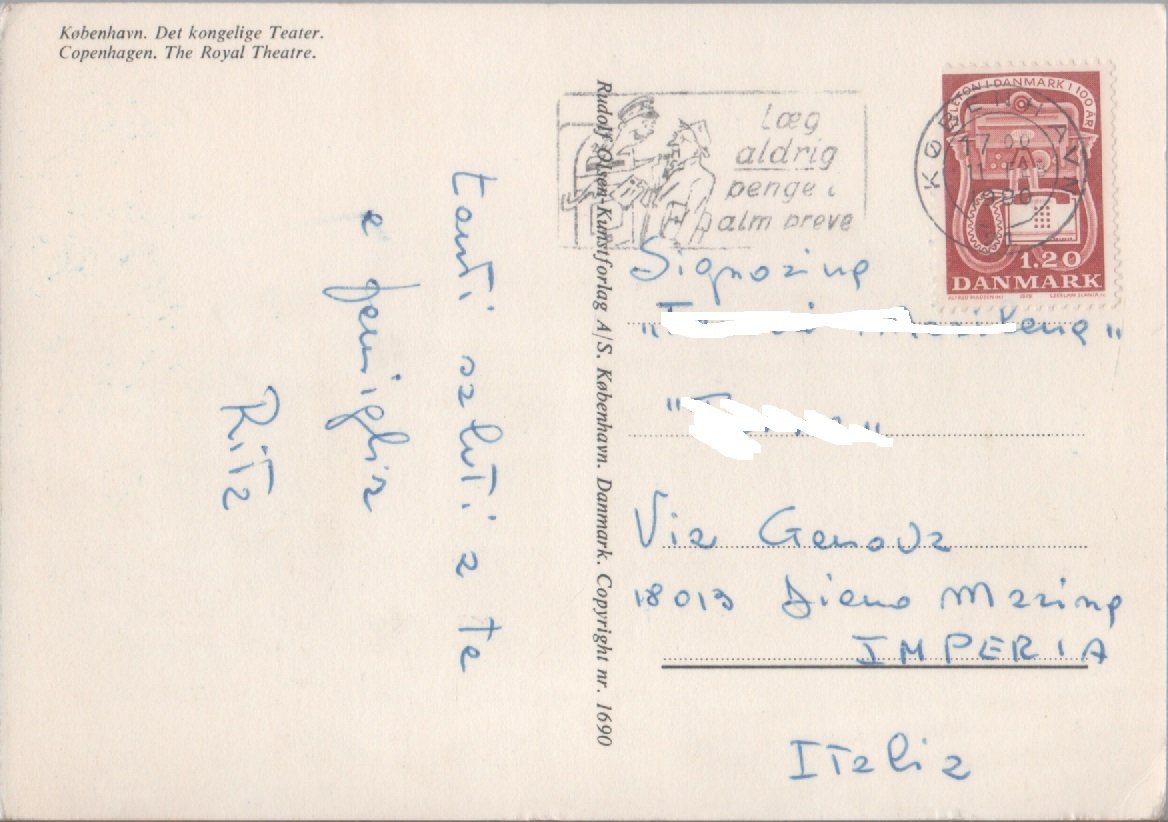 København. Det kongelige Teater.
Copenhagen. The Royal Theatre.
Rudolf Olsen Kunstforlag A/S. København. Danmark. Copyright nr. 1690
læg
aldrig
penge i
alm breve
TELEFON I DANMARK I 100 ÅR
KØBENHAVN
1.20
DANMARK
tanti saluti a te
e famiglia
Rita
Signorina
Via Genova
18013 Diano Marina
IMPERIA
Italia